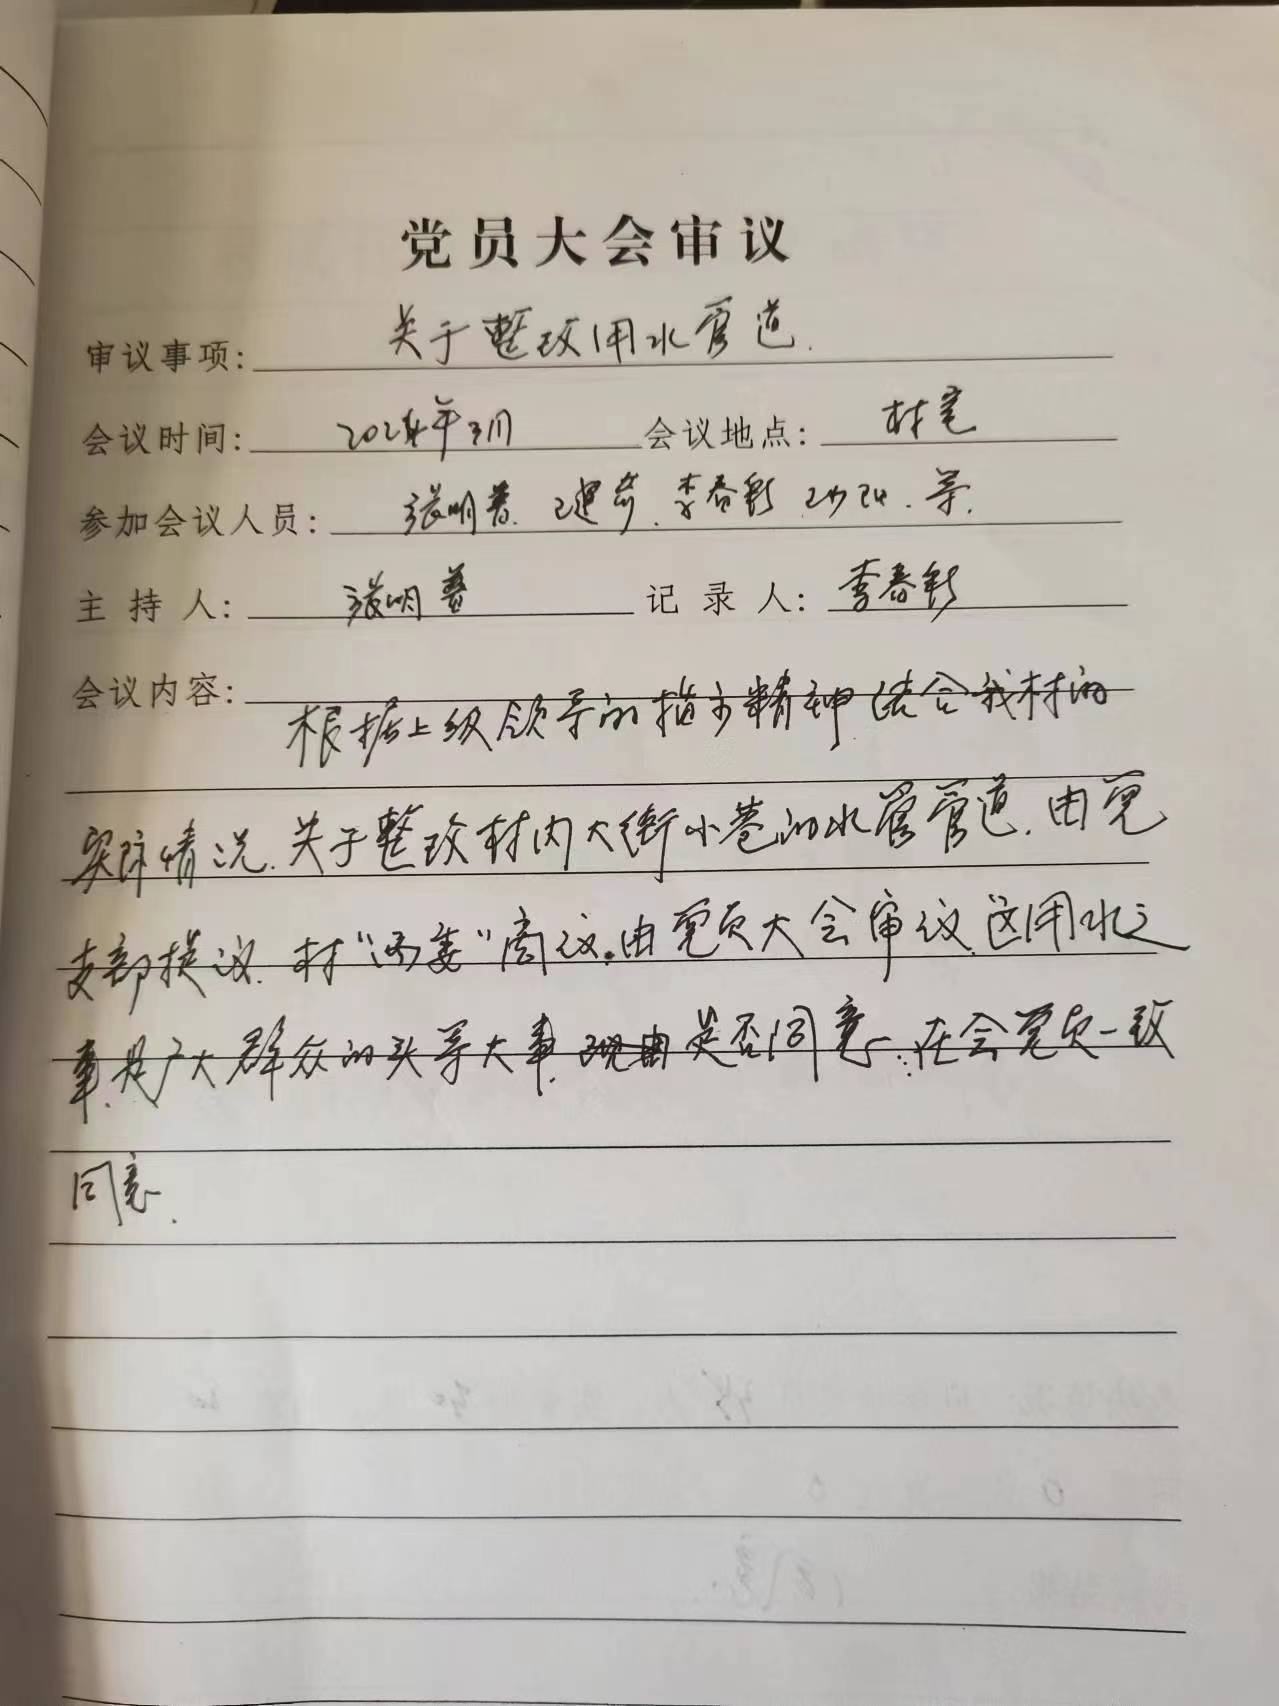 党员大会审议
审议事项: 关于整改用水管道.
会议时间: 2024年3月 会议地点: 村室
参加会议人员: 张明普. 李春彩 等.
主持人: 张明普 记录人: 李春彩
会议内容:
根据上级领导的指示精神结合我村的
实际情况.关于整改村内大街小巷的水管管道.由党
支部提议.村“两委”商议.由党员大会审议.这用水之
事.是广大群众的头等大事.是否同意:在会党员一致
同意.